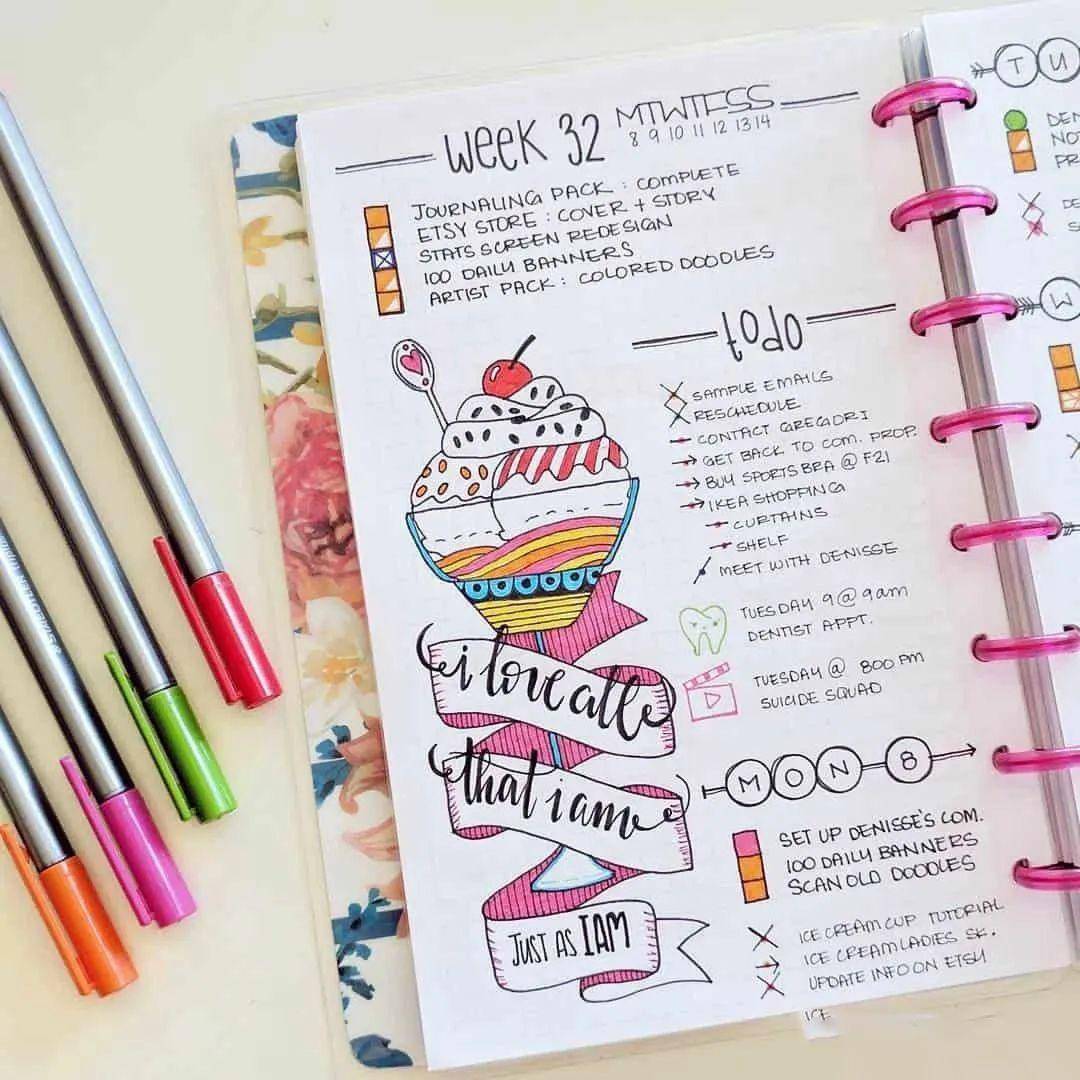 WEEK 32
MTWTFSS
8 9 10 11 12 13 14
JOURNALING PACK : COMPLETE
ETSY STORE : COVER + STORY
STATS SCREEN REDESIGN
100 DAILY BANNERS
ARTIST PACK : COLORED DOODLES
todo
SAMPLE EMAILS
RESCHEDULE
CONTACT GREGORI
GET BACK TO COM. PROP.
BUY SPORTS BRA @ F21
IKEA SHOPPING
CURTAINS
SHELF
MEET WITH DENISSE
TUESDAY 9 @ 9am
DENTIST APPT.
TUESDAY @ 800 PM
SUICIDE SQUAD
i love all
that i am
JUST AS I AM
MON 8
SET UP DENISSE'S COM.
100 DAILY BANNERS
SCAN OLD DOODLES
ICE CREAM CUP TUTORIAL
ICE CREAM LADIES SK.
UPDATE INFO ON ETSY
ICE
TU
DEN
NO
PR
DE
S
W
STAEDTLER